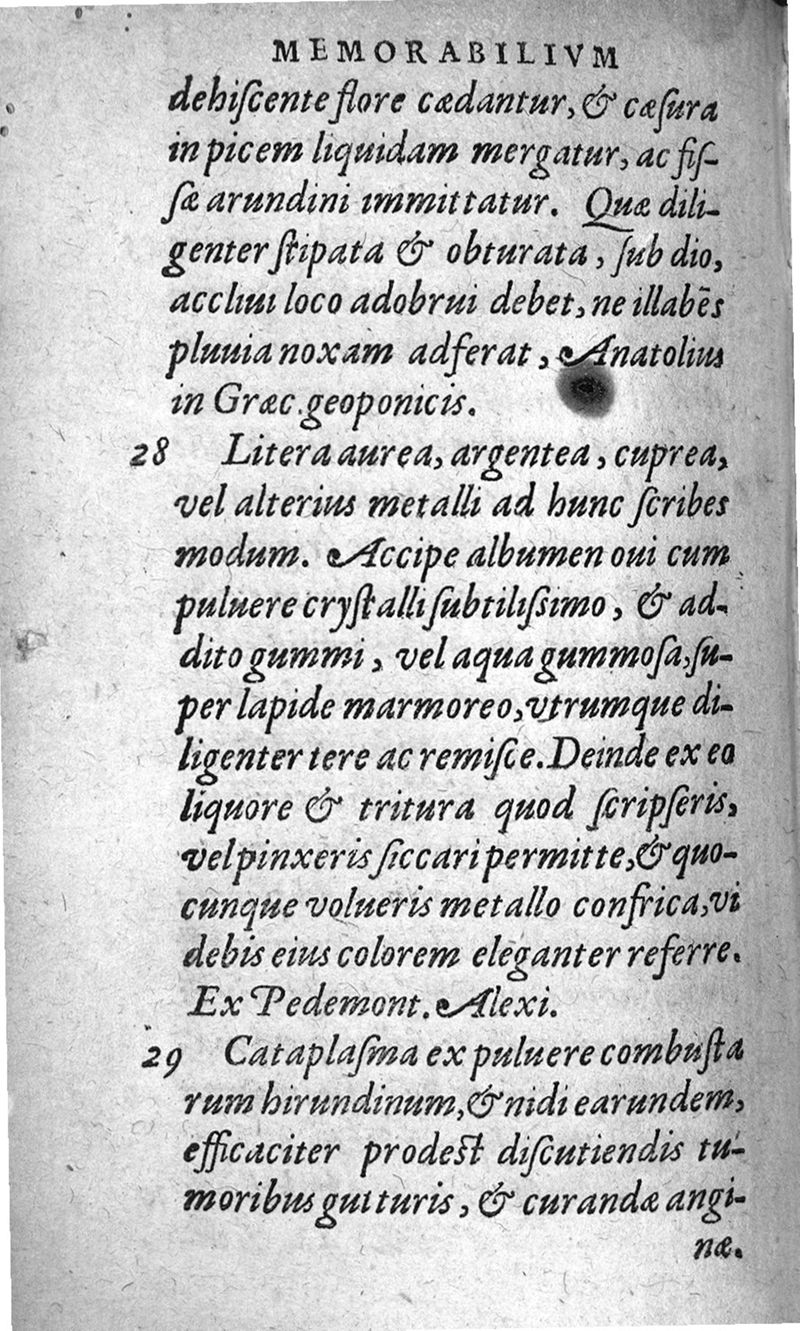 MEMORABILIVM
dehiſcente flore cædantur, & cæſura
in picem liquidam mergatur, ac fiſ-
ſæ arundini immittatur. Quæ dili-
genter ſtipata & obturata, ſub dio,
accliui loco adobrui debet, ne illabēs
pluuia noxam adferat, Anatolius
in Græc. geoponicis.
28 Litera aurea, argentea, cuprea,
vel alterius metalli ad hunc ſcribes
modum. Accipe albumen oui cum
puluere cryſtalli ſubtiliſsimo, & ad-
dito gummi, vel aqua gummoſa, ſu-
per lapide marmoreo, vtrumque di-
ligenter tere ac remiſce. Deinde ex eo
liquore & tritura quod ſcripſeris,
vel pinxeris ſiccari permitte, & quo-
cunque volueris metallo confrica, vi
debis eius colorem eleganter referre.
Ex Pedemont. Alexi.
29 Cataplaſma ex puluere combuſta
rum hirundinum, & nidi earundem,
efficaciter prodeſt diſcutiendis tu-
moribus gutturis, & curandæ angi-
næ.